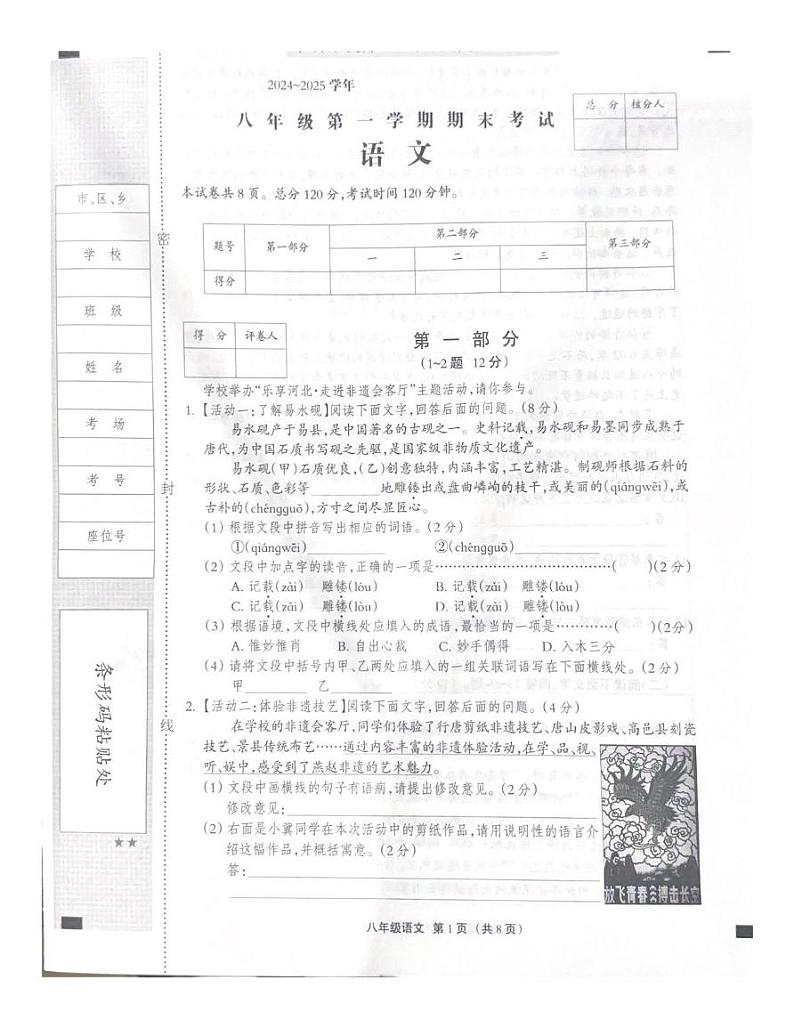 2024~2025 学年
八年级第一学期期末考试
语文
总 分 核分人
本试卷共 8 页。总分 120 分,考试时间 120 分钟。
题号 第一部分 第二部分 第三部分
一 二 三
得分
市、区、乡
学 校
班 级
姓 名
考 场
考 号
座位号
条形码粘贴处
★★
密
封
线
得 分 评卷人
第一部分
(1~2题 12分)
学校举办“乐享河北·走进非遗会客厅”主题活动,请你参与。
1.【活动一:了解易水砚】阅读下面文字,回答后面的问题。(8 分)
易水砚产于易县,是中国著名的古砚之一。史料记载,易水砚和易墨同步成熟于
唐代,为中国石质书写砚之先驱,是国家级非物质文化遗产。
易水砚(甲)石质优良,(乙)创意独特,内涵丰富,工艺精湛。制砚师根据石料的
形状、石质、色彩等________地雕镂出或盘曲嶙峋的枝干,或美丽的(qiángwēi),或
古朴的(chéngguō),方寸之间尽显匠心。
(1) 根据文段中拼音写出相应的词语。(2 分)
①(qiángwēi)__________ ②(chéngguō)__________
(2) 文段中加点字的读音,正确的一项是……………………………( )(2分)
A. 记载(zài) 雕镂(lóu) B. 记载(zǎi) 雕镂(lòu)
C. 记载(zǎi) 雕镂(lóu) D. 记载(zài) 雕镂(lòu)
(3) 根据语境,文段中横线处应填入的成语,最恰当的一项是…………( )(2分)
A. 惟妙惟肖 B. 自出心裁 C. 妙手偶得 D. 入木三分
(4) 请将文段中括号内甲、乙两处应填入的一组关联词语写在下面横线处。(2 分)
甲________ 乙________
2.【活动二:体验非遗技艺】阅读下面文字,回答后面的问题。(4 分)
在学校的非遗会客厅,同学们体验了行唐剪纸非遗技艺、唐山皮影戏、高邑县刻瓷
技艺、景县传统布艺……通过内容丰富的非遗体验活动,在学、品、视、
听、娱中,感受到了燕赵非遗的艺术魅力。
(1) 文段中画横线的句子有语病,请提出修改意见。(2 分)
修改意见:
(2) 右面是小冀同学在本次活动中的剪纸作品,请用说明性的语言介
绍这幅作品,并概括寓意。(2 分)
答:
放飞青春 搏击长空
八年级语文 第 1 页 (共 8 页)